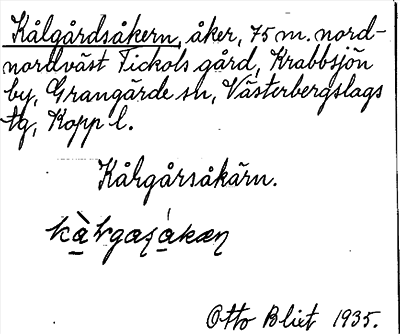 Kålgårdsåkern, åker, 75 m. nord-
nordväst Tickols gård, Krabbsjön
by, Grangärde sn, Västerbergslags
tg, Kopp l.
Kålgårsåkärn.
Otto Blixt 1935.